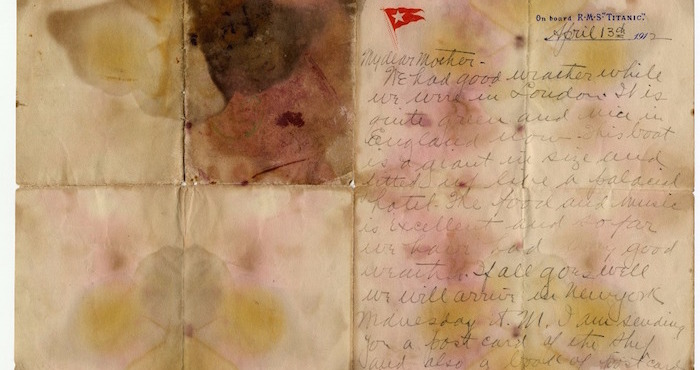 On board R·M·S "TITANIC".
April 13th 1912
My dear Mother-
We had good weather while
we were in London. It is
quite green and nice in
England now. This boat
is a giant in size and
fitted up like a palacial
hotel. The food and music
is excellent and so far
we have had very good
weather. If all goes well
we will arrive in New york
Wednesday A.M. I am sending
you a post card of the ship
and also a book of postcard